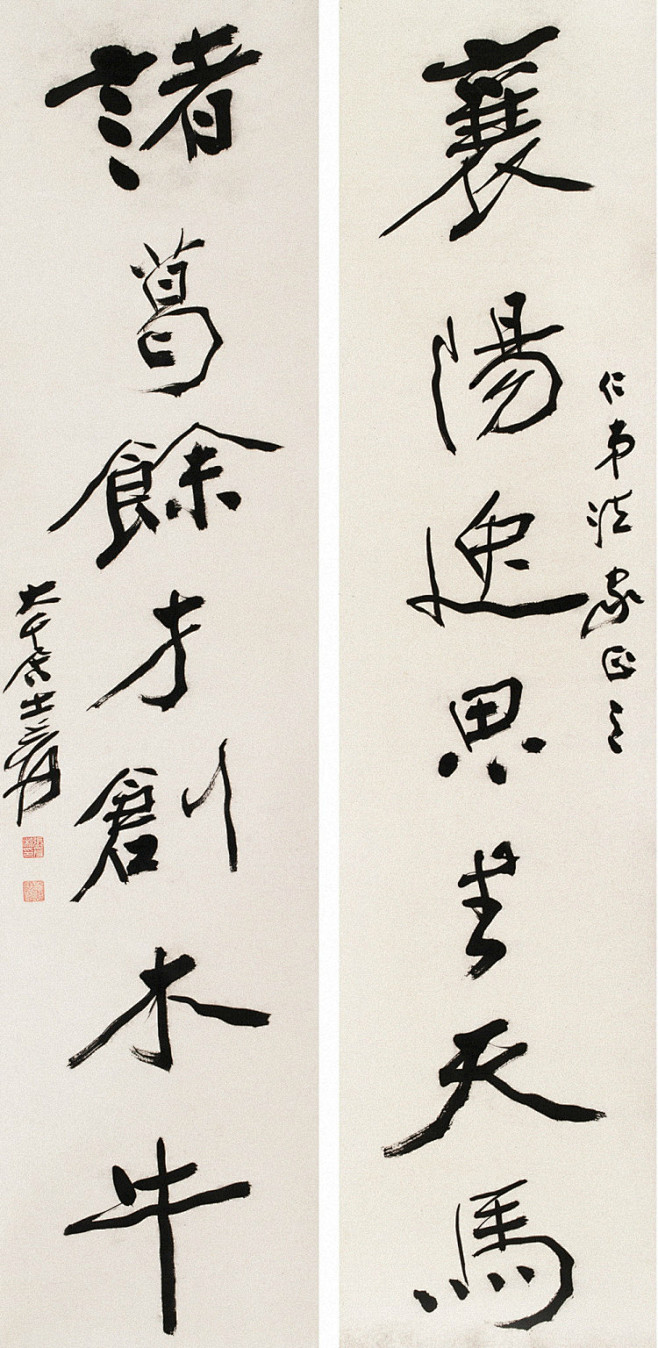 襄陽逸思書天馬
仁弟法家正之
諸葛餘才創木牛
大千居士爰